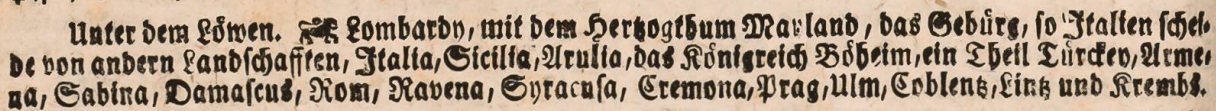 Unter dem Löwen. Lombardy, mit dem Hertzogthum Mayland, das Gebürg, so Italien schei-
de von andern Landschafften, Italia, Sicilia, Apulia, das Königreich Böheim, ein Theil Türckey, Arme-
na, Sabina, Damascus, Rom, Ravena, Syracusa, Cremona, Prag, Ulm, Coblentz, Lintz und Krembs.